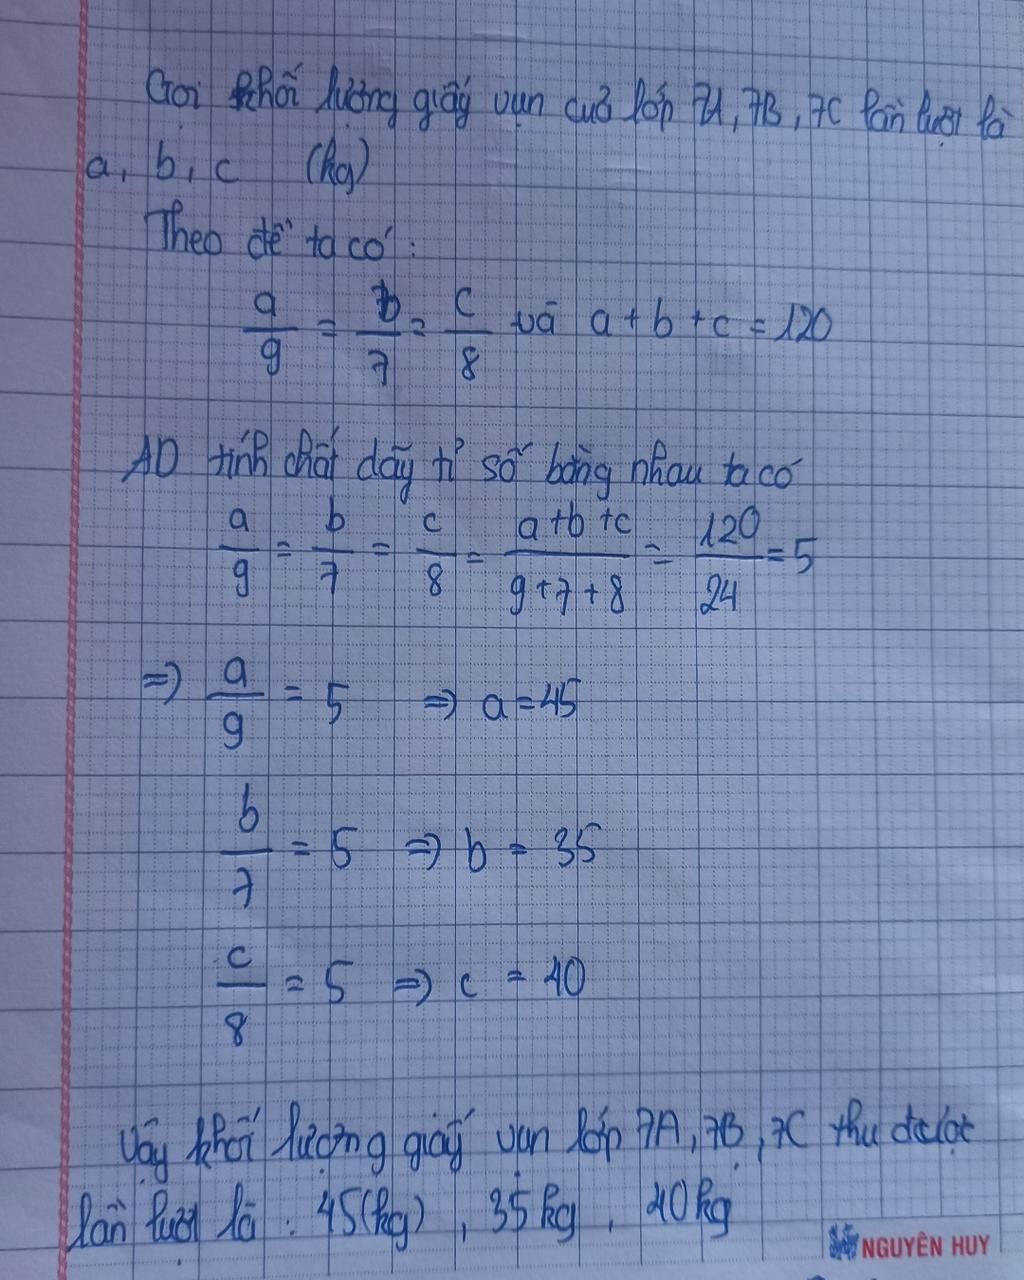 Gọi khối lượng giấy vụn của lớp 7A, 7B, 7C lần lượt là
a, b, c (kg)
Theo đề ta có :
a/9 = b/7 = c/8 và a + b + c = 120
AD tính chất dãy tỉ số bằng nhau ta có
a/9 = b/7 = c/8 = a+b+c/9+7+8 = 120/24 = 5
=> a/9 = 5 => a = 45
b/7 = 5 => b = 35
c/8 = 5 => c = 40
Vậy khối lượng giấy vụn lớp 7A, 7B, 7C thu được
lần lượt là : 45(kg), 35kg, 40kg
NGUYÊN HUY